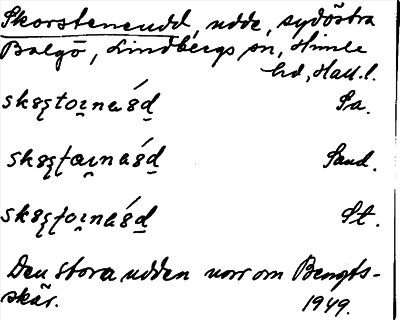 Skorstensudd, udde, sydöstra
Balgö, Lindbergs sn, Himle
hd, Hall.l.
Sa.
Sand.
St.
Den stora udden norr om Bengts-
skär. 1949.